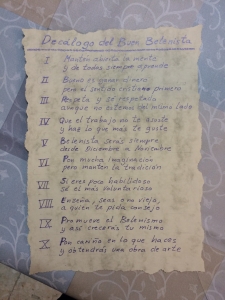 Decálogo del Buen Belenista
I Mantén abierta la mente
y de todos siempre aprende
II Bueno es gobernarnos
pero el sentido cristiano primero
III Respeta y sé respetado
aunque no estemos del mismo lado
IV Que el trabajo no te asuste
y haz lo que más te guste
V Belenista serás siempre
desde Diciembre a Noviembre
VI Pon mucha imaginación
pero mantén la tradición
VII Si eres poco habilidoso
sé el más voluntarioso
VIII Enseña, seas o no viejo,
a quien te pida consejo
IX Promueve el Belenismo
y así crecerás tú mismo
X Pon cariño en lo que haces
y obtendrás una obra de arte